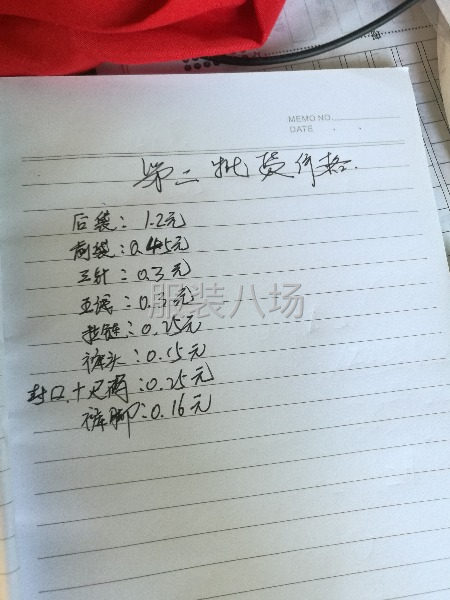 MEMO NO.
DATE
第二批货价格.
后袋: 1.2元
前袋: 0.45元
三针: 0.3元
: 0.3元
拉链: 0.25元
裤头: 0.15元
封口.十: 0.25元
裤脚: 0.16元
服装八场